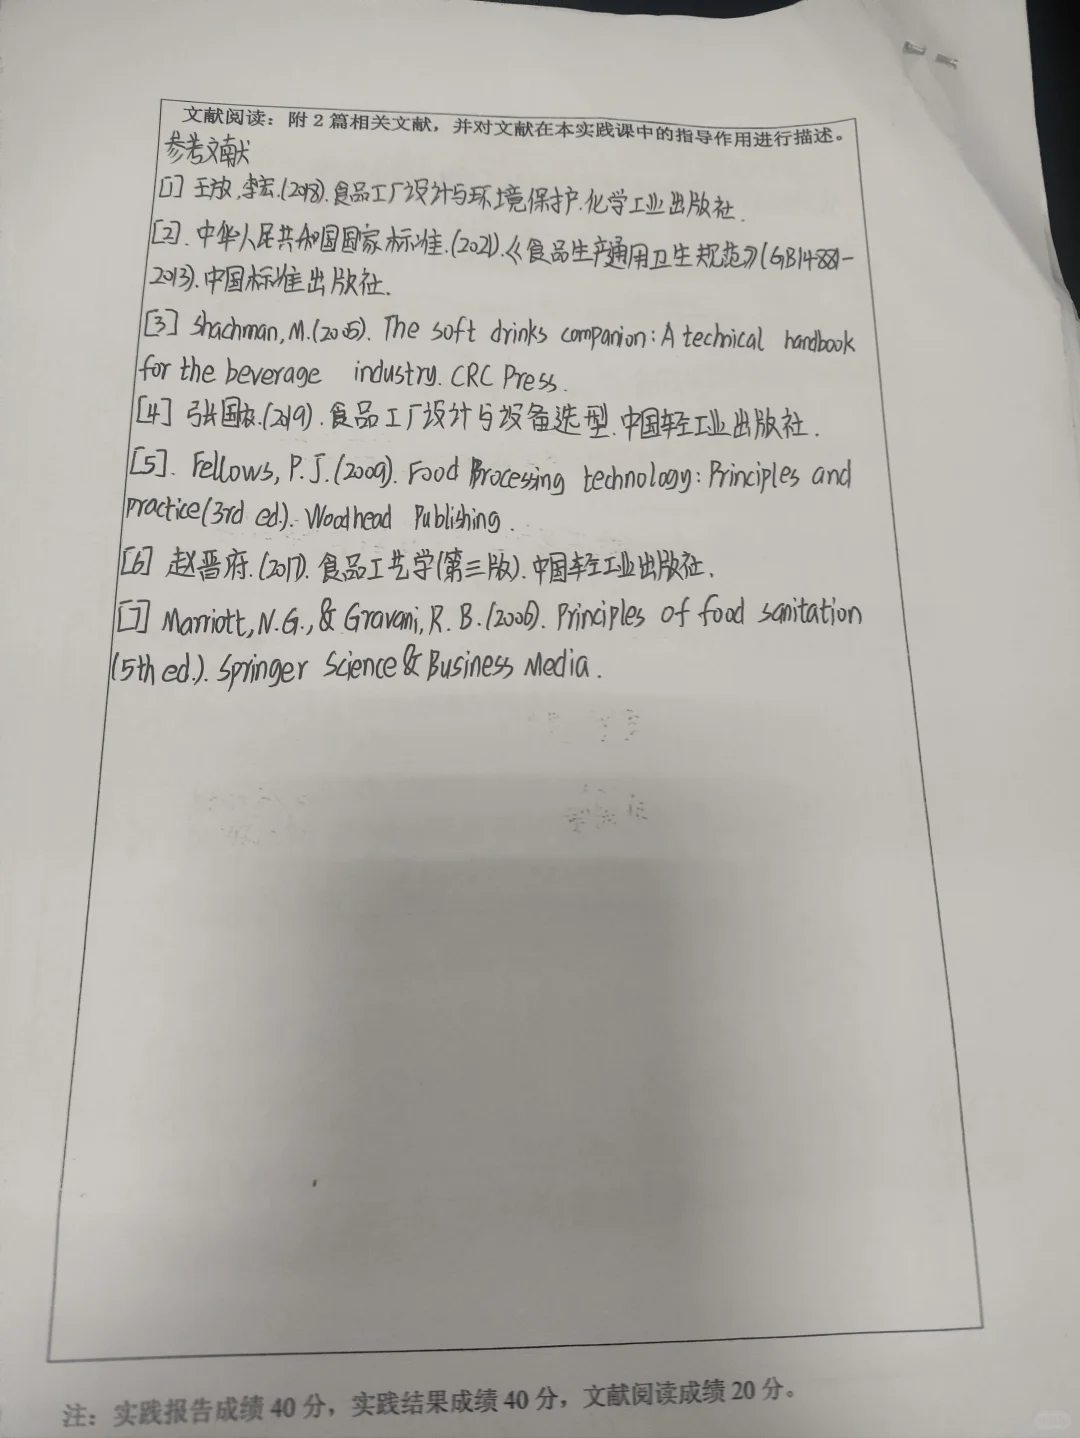 文献阅读：附 2 篇相关文献，并对文献在本实践课中的指导作用进行描述。
参考文献
[1] 王放,李宏.(2018).食品工厂设计与环境保护.化学工业出版社.
[2].中华人民共和国国家标准.(2021).《食品生产通用卫生规范》(GB14881-
2013).中国标准出版社.
[3] Shachman,M.(2005). The soft drinks companion:A technical handbook
for the beverage industry. CRC Press.
[4] 张国农.(2019).食品工厂设计与设备选型.中国轻工业出版社.
[5]. Fellows, P.J.(2009). Food Processing technology: Principles and
practice(3rd ed.). Woodhead Publishing.
[6] 赵晋府.(2017).食品工艺学(第三版).中国轻工业出版社.
[7] Marriott,N.G.,& Gravani,R.B.(2006). Principles of food sanitation
(5th ed.). Springer Science & Business Media.
注：实践报告成绩 40 分，实践结果成绩 40 分，文献阅读成绩 20 分。